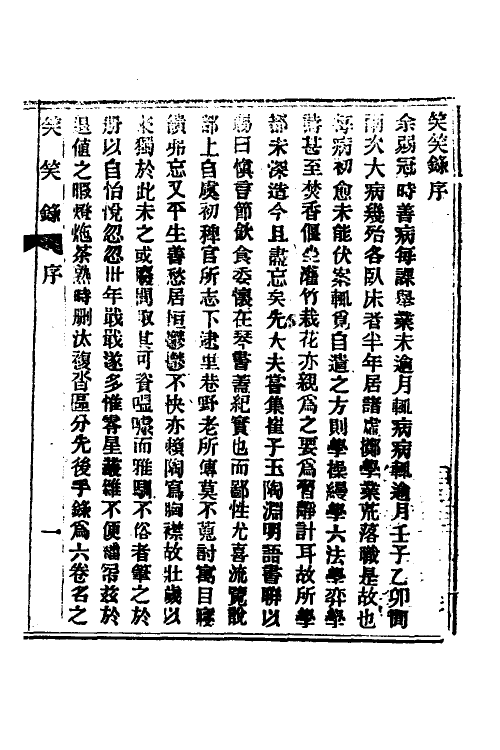 笑笑錄序
余弱冠時善病每課舉業未逾月輒病病輒逾月壬子乙卯間
兩次大病幾殆各臥床者半年居諸虛擲學業荒落職是故也
每病初愈未能伏案輒覓自遣之方則學操縵學六法學弈學
詩甚至焚香偃坐灌竹栽花亦親為之要為習靜計耳故所學
都未深造今且盡忘矣先大夫嘗集崔子玉陶淵明語書聯以
賜曰慎言節飲食委懷在琴書蓋紀實也而鄙性尤喜流覽說
部上自虞初稗官所志下逮里巷野老所傳莫不蒐討寓目寢
饋弗忘又平生善愁居恒鬱鬱不快亦賴陶寫胸襟故壯歲以
來獨於此未之或廢間取其可資嗢噱而雅馴不俗者筆之於
冊以自怡悅忽忽卅年戢戢遂多惟零星叢雜不便繙帑茲於
退值之暇燈炧茶熟時刪汰複沓區分先後手錄為六卷名之
笑笑錄
序
一